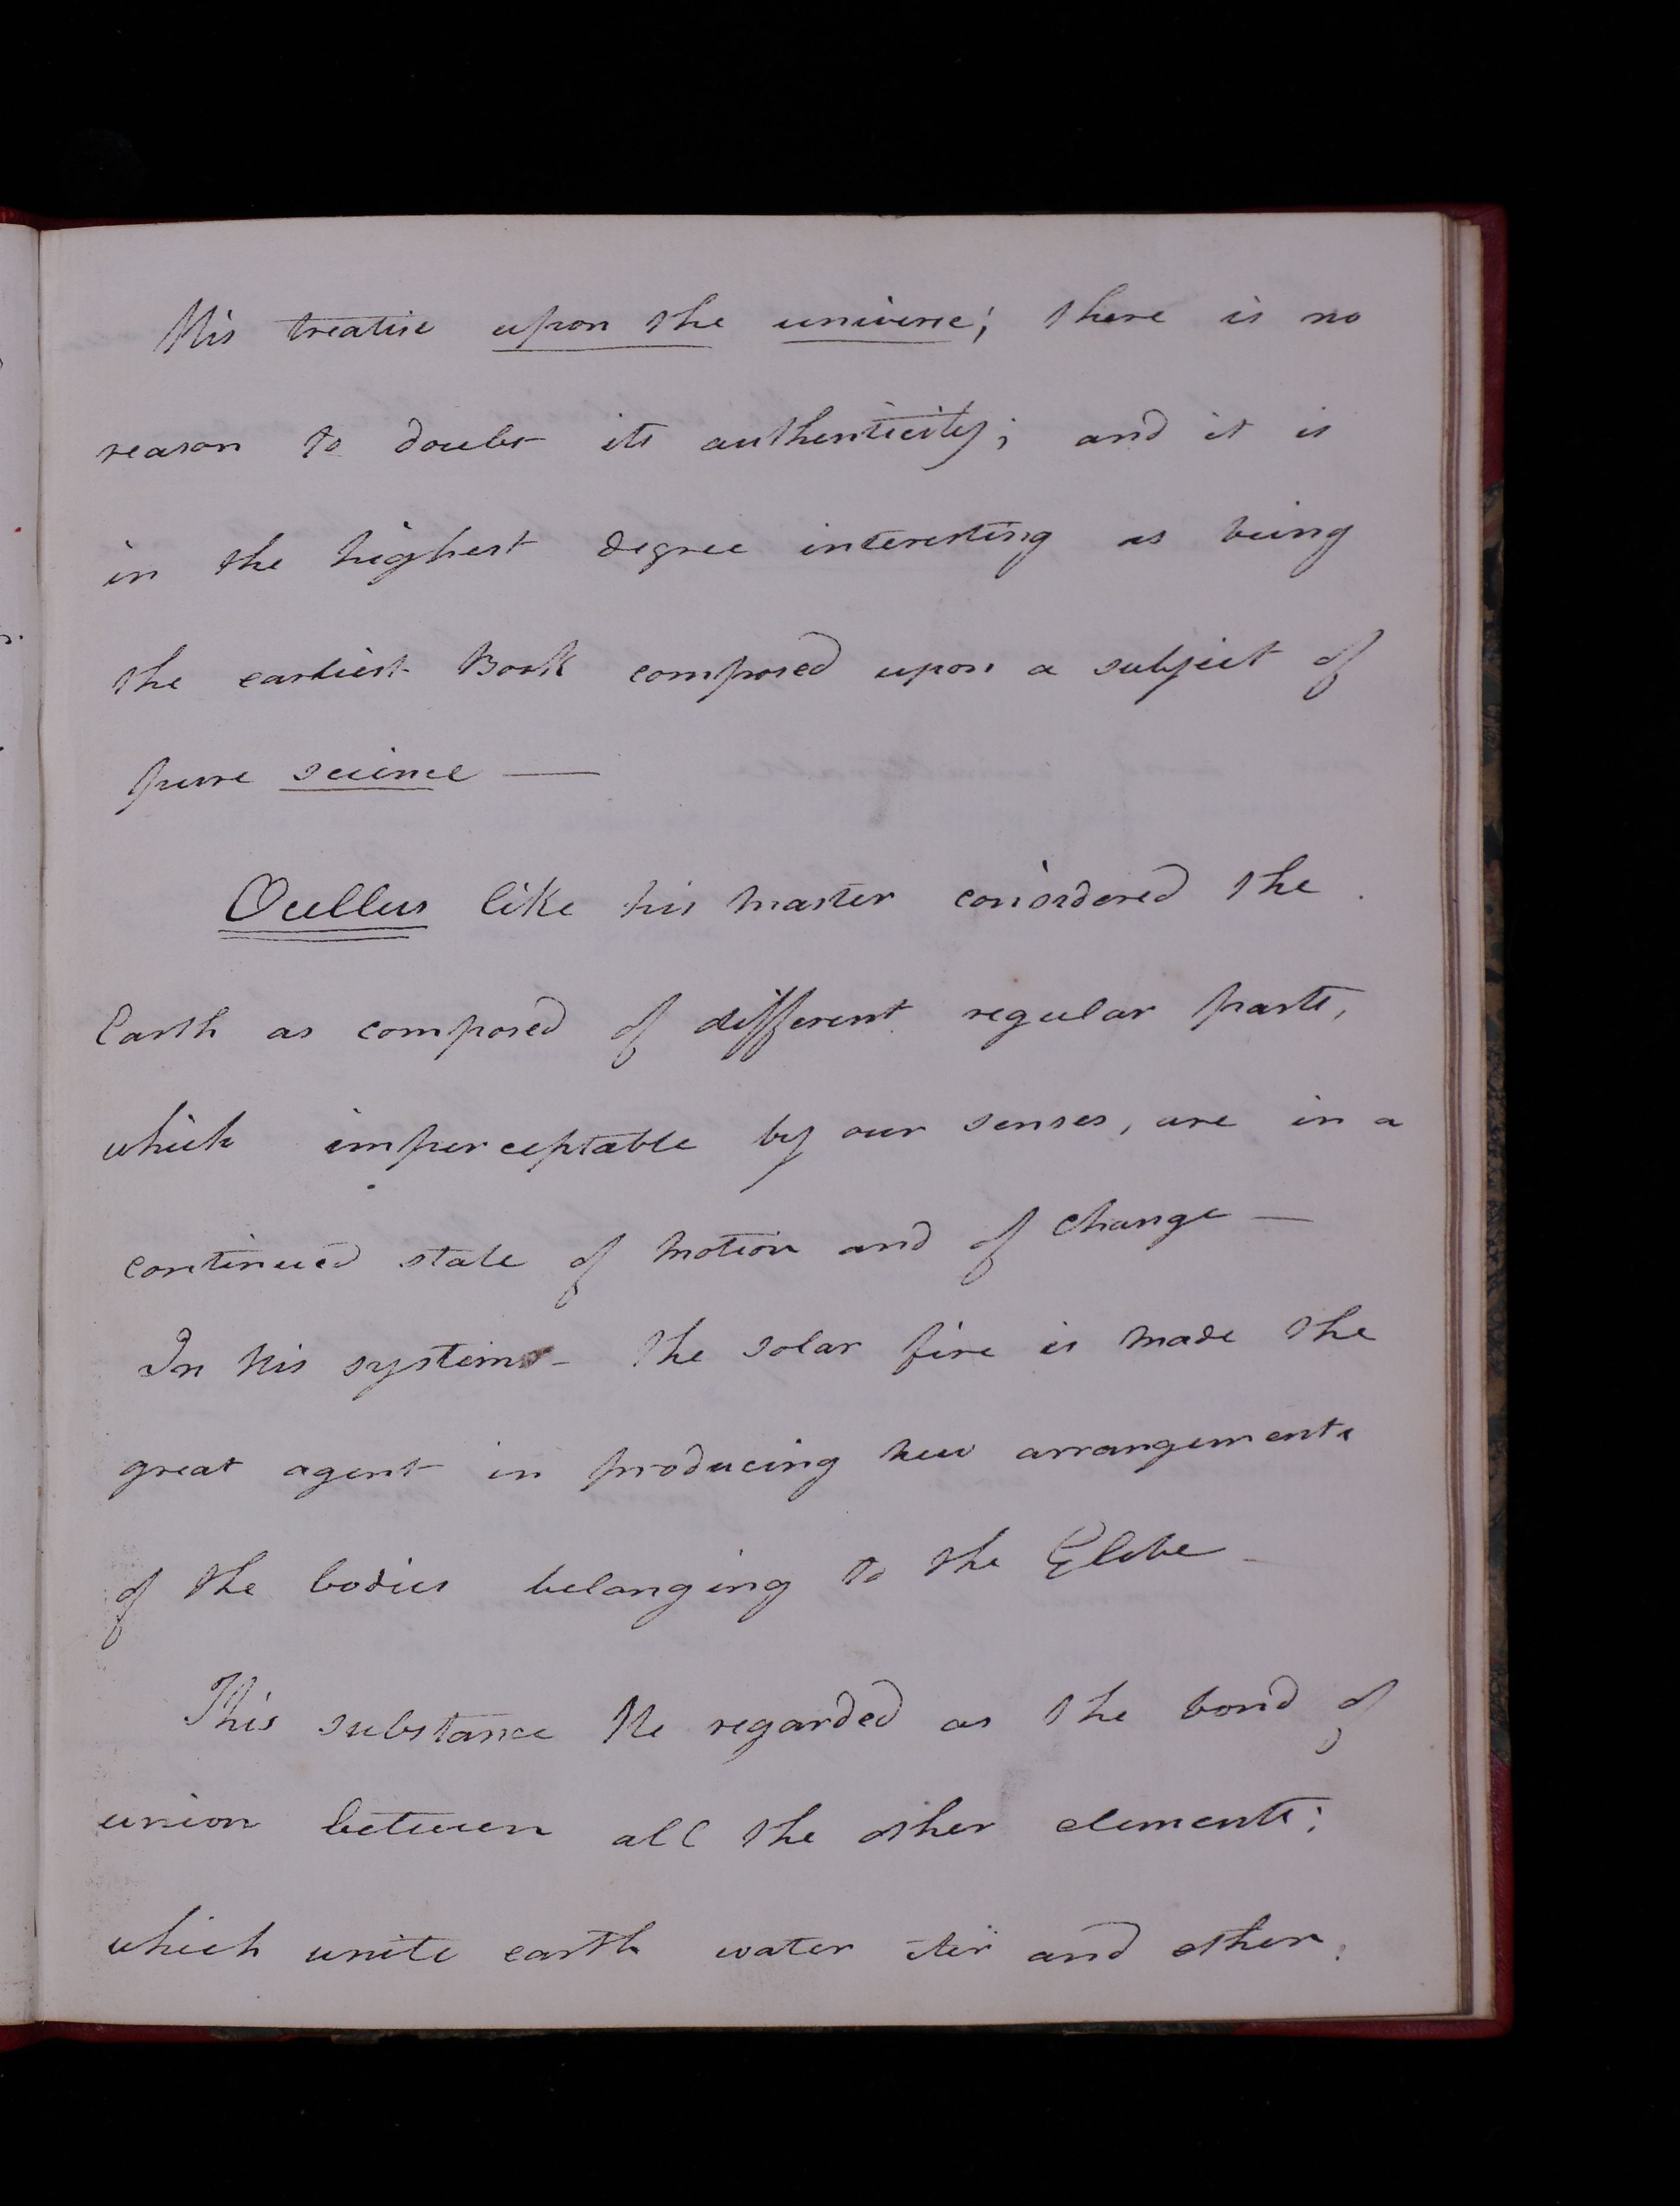 His treatise upon the universe; there is no
reason to doubt its authenticity; and it is
in the highest degree interesting as being
the earliest Book composed upon a subject of
pure science —
Ocellus like his master considered the
Earth as composed of different regular parts,
which imperceptable by our senses, are in a
continued state of motion and of change —
In his system - the solar fire is made the
great agent in producing new arrangements
of the bodies belonging to the Globe -
This substance He regarded as the bond of
union between all the other elements;
which unite earth water Air and ether.